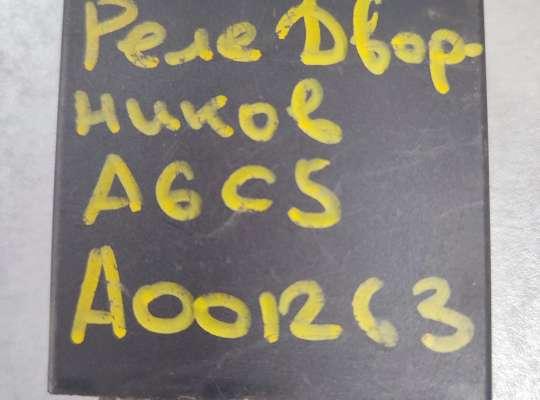 Реле Двор-
ников
A6C5
A001263